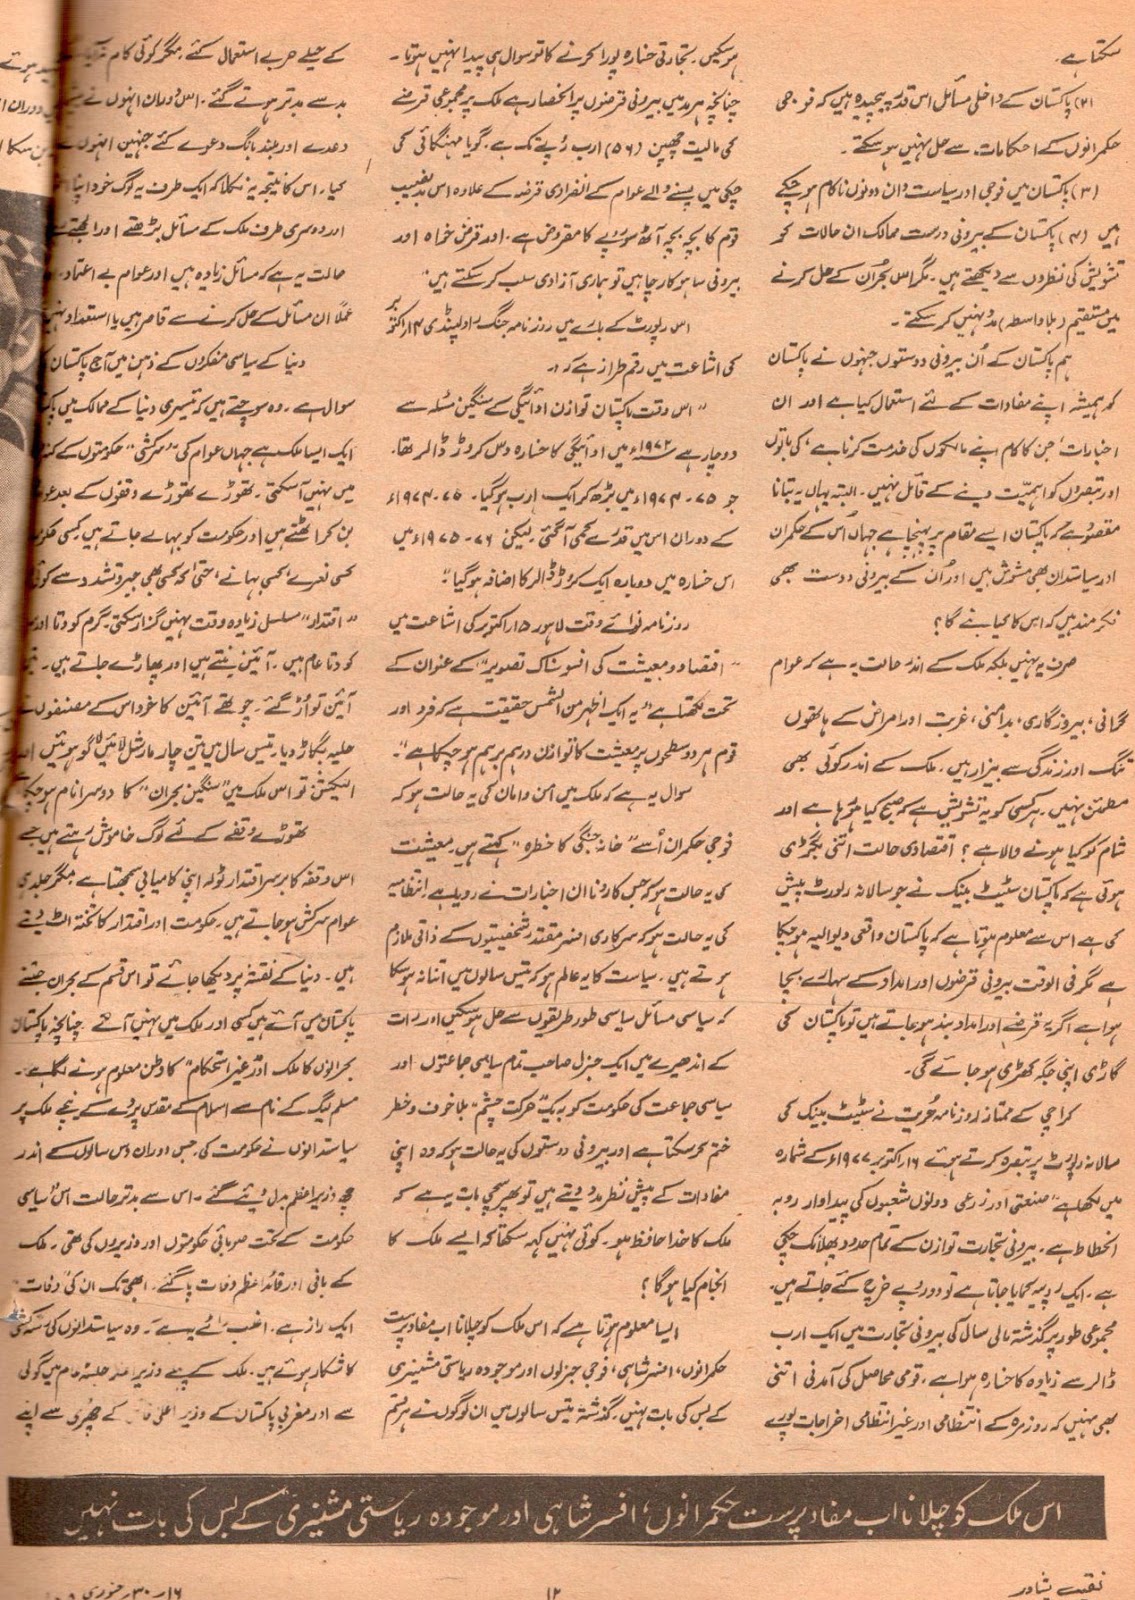 سکتا ہے۔
(۲) پاکستان کے داخلی مسائل اس قدر پیچیدہ ہیں کہ فوجی
حکمرانوں کے احکامات سے حل نہیں ہو سکتے۔
(۳) پاکستان میں فوجی اور سیاست دان دونوں ناکام ہو چکے
ہیں (۴) پاکستان کے بیرونی دوست ممالک ان حالات کو
تشویش کی نظروں سے دیکھتے ہیں۔ مگر اس بحران کے حل کرنے
میں مستقیم (بلاواسطہ) مدد نہیں کر سکتے۔
ہم پاکستان کے اُن بیرونی دوستوں جنہوں نے پاکستان
کو ہمیشہ اپنے مفادات کے لئے استعمال کیا ہے اور ان
اخبارات، جن کا کام اپنے مالکوں کی خدمت کرنا ہے، کی باتوں
اور تبصروں کو اہمیت دینے کے قائل نہیں۔ البتہ یہاں یہ بتانا
مقصود ہے کہ پاکستان ایسے مقام پر پہنچا ہے جہاں اُس کے حکمران
اور سیاستدان بھی مشوش ہیں اور اُن کے بیرونی دوست بھی
فکر مند ہیں کہ اس کا کیا بنے گا؟
صرف یہ نہیں بلکہ ملک کے اندر حالت یہ ہے کہ عوام
گرانی، بیروزگاری، بدامنی، غربت اور امراض کے ہاتھوں
تنگ اور زندگی سے بیزار ہیں۔ ملک کے اندر کوئی بھی
مطمئن نہیں۔ ہر کسی کو یہ تشویش ہے کہ صبح کیا ہو رہا ہے اور
شام کو کیا ہونے والا ہے؟ اقتصادی حالت اتنی بگڑی
ہوئی ہے کہ پاکستان سٹیٹ بینک نے جو سالانہ رپورٹ پیش
کی ہے اس سے معلوم ہوتا ہے کہ پاکستان واقعی دیوالیہ ہو چکا
ہے مگر فی الوقت بیرونی قرضوں اور امداد کے سہارے بچا
ہوا ہے اگر یہ قرضے اور امداد بند ہو جاتے ہیں تو پاکستان کی
گاڑی اپنی جگہ کھڑی ہو جائے گی۔
کراچی کے ممتاز روزنامہ حُریت نے سٹیٹ بینک کی
سالانہ رپورٹ پر تبصرہ کرتے ہوئے ۱۶ اکتوبر ۱۹۷۷ء کے شمارہ
میں لکھا ہے "صنعتی اور زرعی دونوں شعبوں کی پیداوار روبہ
انحطاط ہے۔ بیرونی تجارت توازن کے تمام حدود پھلانگ چکی
ہے۔ ایک روپیہ کمایا جاتا ہے تو دو روپے خرچ کئے جاتے ہیں۔
مجموعی طور پر گذشتہ مالی سال کی بیرونی تجارت میں ایک ارب
ڈالر سے زیادہ کا خسارہ ہوا ہے۔ قومی محاصل کی آمدنی اتنی
بھی نہیں کہ روزمرہ کے انتظامی اور غیر انتظامی اخراجات پورے
ہو سکیں۔ تجارتی خسارہ پورا کرنے کا تو سوال ہی پیدا نہیں ہوتا۔
چنانچہ ہر مد میں بیرونی قرضوں پر انحصار ہے ملک پر مجموعی قرضے
کی مالیت چھپن (۵۶) ارب روپے تک ہے۔ گویا مہنگائی کی
چکی میں پسنے والے عوام کے انفرادی قرضہ کے علاوہ اس بدنصیب
قوم کا بچہ بچہ آٹھ سو روپے کا مقروض ہے۔ اور قرض خواہ اور
بیرونی ساہوکار چاہیں تو ہماری آزادی سلب کر سکتے ہیں"
اس رپورٹ کے بارے میں روزنامہ جنگ راولپنڈی ۱۴ اکتوبر
کی اشاعت میں رقم طراز ہے کہ:۔
"اس وقت پاکستان توازن ادائیگی کے سنگین مسئلہ سے
دوچار ہے ۱۹۷۲ء میں ادائیگی کا خسارہ دس کروڑ ڈالر تھا۔
جو ۷۵-۱۹۷۴ء میں بڑھ کر ایک ارب ہو گیا۔ ۱۹۷۴ء
کے دوران اس میں قدرے کمی آ گئی۔ لیکن ۷۶-۱۹۷۵ء میں
اس خسارہ میں دوبارہ ایک کروڑ ڈالر کا اضافہ ہو گیا"
روزنامہ نوائے وقت لاہور ۱۵ اکتوبر کی اشاعت میں
"اقتصاد و معیشت کی افسوسناک تصویر" کے عنوان کے
تحت لکھتا ہے "یہ ایک اظہر من الشمس حقیقت ہے کہ فرد اور
قوم ہر دو سطحوں پر معیشت کا توازن درہم برہم ہو چکا ہے"۔
سوال یہ ہے کہ ملک میں امن و امان کی یہ حالت ہو کہ
فوجی حکمران اُسے "خانہ جنگی کا خطرہ" کہتے ہیں۔ معیشت
کی یہ حالت ہو کہ جس کا رونا ان اخبارات نے رویا ہے انتظامیہ
کی یہ حالت ہو کہ سرکاری افسر مقتدر شخصیتوں کے ذاتی ملازم
ہوتے ہیں۔ سیاست کا یہ عالم ہو کہ تیس سالوں میں اتنا نہ ہو سکا
کہ سیاسی مسائل سیاسی طور طریقوں سے حل ہو سکیں اور رات
کے اندھیرے میں ایک جنرل صاحب تمام سیاسی جماعتوں اور
سیاسی جماعت کی حکومت کو بیک "حرکت چشم" بلا خوف و خطر
ختم کر سکتا ہے اور بیرونی دوستوں کی یہ حالت ہو کہ وہ اپنی
مفادات کے پیش نظر مدد دیتے ہیں تو پھر سچی بات یہ ہے کہ
ملک کا خدا حافظ ہو۔ کوئی نہیں کہہ سکتا کہ ایسے ملک کا
انجام کیا ہو گا؟
ایسا معلوم ہوتا ہے کہ اس ملک کو چلانا اب مفاد پرست
حکمرانوں، افسر شاہی، فوجی جنرلوں اور موجودہ ریاستی مشینری
کے بس کی بات نہیں۔ گذشتہ تیس سالوں میں ان لوگوں نے ہر قسم
کے حیلے حربے استعمال کئے۔ مگر کوئی کام نہ آیا
بد سے بدتر ہوتے گئے۔ اس دوران انہوں نے
وعدے اور بلند بانگ دعوے کئے جنہیں انہوں نے
کیا۔ اس کا نتیجہ یہ نکلا کہ ایک طرف یہ لوگ خود اپنا
اور دوسری طرف ملک کے مسائل بڑھتے اور الجھتے
حالت یہ ہے کہ مسائل زیادہ ہیں اور عوام بے اعتماد۔
عملاً ان مسائل کے حل کرنے سے قاصر ہیں یا استعداد نہیں
دنیا کے سیاسی مفکروں کے ذہن میں آج پاکستان
سوال ہے۔ وہ سوچتے ہیں کہ تیسری دنیا کے ممالک میں
ایک ایسا ملک ہے جہاں عوام کی "سرکشی" حکومتوں کے
میں نہیں آ سکتی۔ تھوڑے تھوڑے وقفوں کے بعد
بن کر اٹھتے ہیں اور حکومت کو بہا لے جاتے ہیں کسی
کسی نعرے، کسی بہانے، حتیٰ کہ کسی بھی جبر و تشدد سے کوئی
"اقتدار" مسلسل زیادہ وقت نہیں گزار سکتی۔ گرم کودتا اور
کودتا عام ہیں۔ آئین بنتے ہیں اور پھاڑے جاتے ہیں۔
آئین تو اُڑ گئے۔ چوتھے آئین کا خود اس کے مصنفوں نے
حلیہ بگاڑ دیا۔ تیس سال میں تین چار مارشل لائیں لاگو ہوئیں
الیکشن تو اس ملک میں "سنگین بحران" کا دوسرا نام ہو چکا
تھوڑے وقفے کے لئے لوگ خاموش رہتے ہیں جسے
اس وقفہ کا برسر اقتدار ٹولہ اپنی کامیابی سمجھتا ہے مگر جلد ہی
عوام سرکش ہو جاتے ہیں۔ حکومت اور اقتدار کا تختہ الٹ دیتے
ہیں۔ دنیا کے نقشہ پر دیکھا جائے تو اس قسم کے بحران جتنے
پاکستان میں آئے ہیں کسی اور ملک میں نہیں آئے۔ چنانچہ پاکستان
بحرانوں کا ملک اور "غیر استحکام" کا وطن معلوم ہونے لگا ہے۔
مسلم لیگ کے نام سے اسلام کے مقدس پردے کے نیچے ملک پر
سیاستدانوں نے حکومت کی جس دوران دس سالوں کے اندر
چھ وزیراعظم بدل دیئے گئے۔ اس سے بدتر حالت اس سیاسی
حکومت کے تحت صوبائی حکومتوں اور وزیروں کی تھی۔ ملک
کے بانی اور قائداعظم وفات پا گئے۔ ابھی تک ان کی وفات
ایک راز ہے۔ اغلب رائے یہ ہے کہ وہ سیاستدانوں کی
کا شکار ہوئے ہیں۔ ملک کے پہلے وزیر جلسۂ عام میں گولی
سے اور مغربی پاکستان کے وزیر اعلیٰ چھری سے اپنے
اس ملک کو چلانا اب مفاد پرست حکمرانوں، افسر شاہی اور موجودہ ریاستی مشینری کے بس کی بات نہیں
نقیب پشاور
۱۲
۱۶ر ۳۰ر جنوری